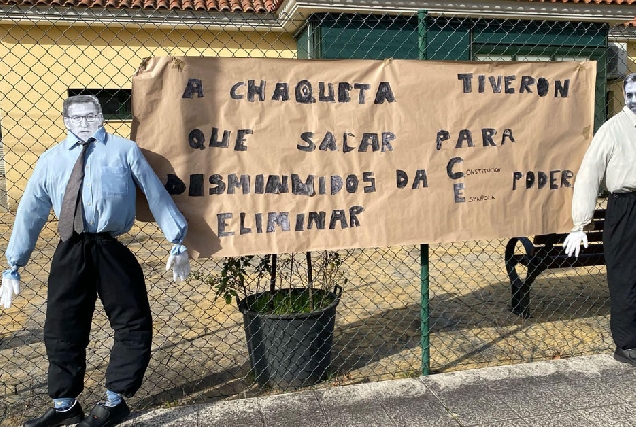 A CHAQUETA TIVERON
QUE SACAR PARA
DISMINUIDOS DA CONSTITUCIÓN PODER
ESPAÑOLA
ELIMINAR